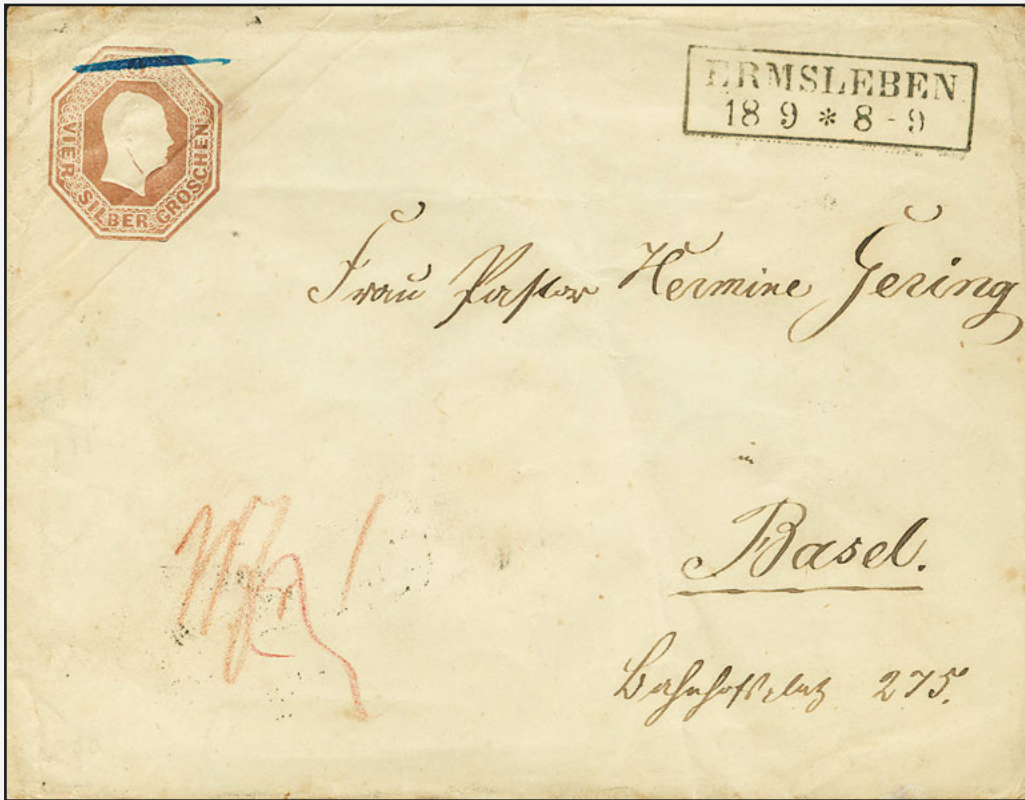 VIER SILBER GROSCHEN
ERMSLEBEN
18 9 * 8-9
Frau Pastor Hermine Gering
in
Basel.
Bahnhofsplatz 275.